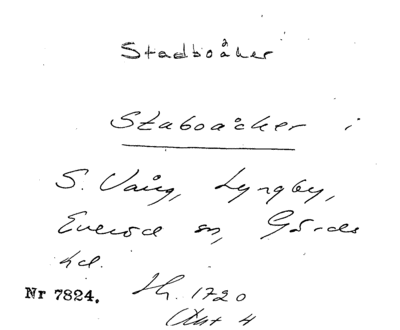 Stadboåker
Staboacker i
S. Vång, Lyngby,
Everöd sn, Gärds
hd.
Nr 7824. Lh. 1720
Akt 4